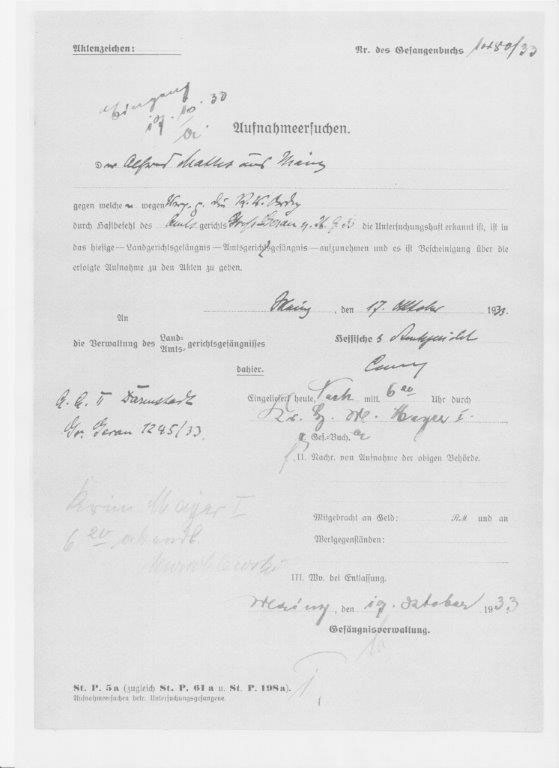 Aktenzeichen:
Nr. des Gefangenbuchs 1080/33
Eingang
19. 10. 33
Aufnahmeersuchen.
D er Alfred aus Mainz
gegen welche n wegen
durch Haftbefehl des Amts gerichts Groß-Gerau die Untersuchungshaft erkannt ist, ist in
das hiesige—Landgerichtsgefängnis—Amtsgerichtsgefängnis—aufzunehmen und es ist Bescheinigung über die
erfolgte Aufnahme zu den Akten zu geben.
Mainz, den 17. Oktober 193
An
die Verwaltung des Land- Amts- gerichtsgefängnisses
dahier.
Hessisches Amtsgericht
Eingeliefert heute, Nach mitt. 6 20 Uhr durch
Mayer I.
G. A. II Darmstadt
Gr. Gerau 1245/33.
I. Gef.-Buch.
II. Nachr. von Aufnahme der obigen Behörde.
Krim Mayer I
6 20 abend
Mitgebracht an Geld: RM und an
Wertgegenständen:
III. Wv. bei Entlassung.
Mainz, den 19. Oktober 1933
Gefängnisverwaltung.
St. P. 5a (zugleich St. P. 61a u. St. P. 198a).
Aufnahmeersuchen betr. Untersuchungsgefangene.